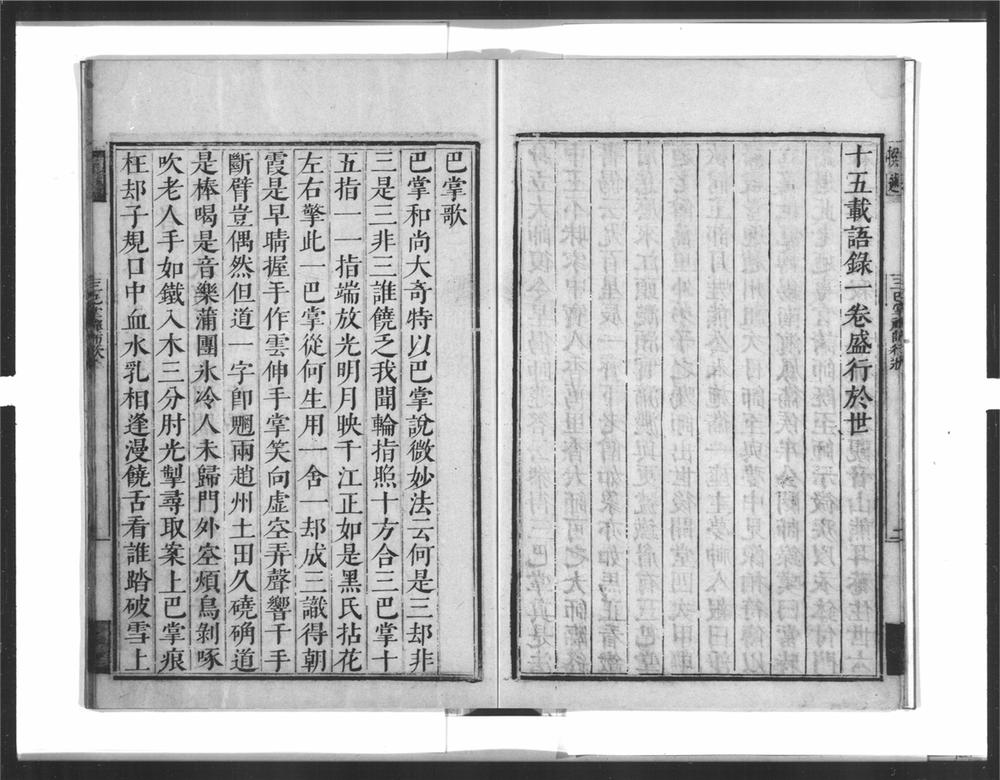 十五載語錄一卷盛行於世
巴掌歌
巴掌和尚大奇特以巴掌說微妙法云何是三却非
三是三非三誰饒乏我聞輪指照十方合三巴掌十
五指一一指端放光明月映千江正如是黑氏拈花
左右擎此一巴掌從何生用一舍一却成三識得朝
霞是早晴握手作雲伸手掌笑向虛空弄聲響千手
斷臂豈偶然但道一字卽魍兩趙州土田久磽确道
是棒喝是音樂蒲團氷冷人未歸門外空煩鳥剝啄
吹老人手如鐵入木三分肘光掣尋取案上巴掌痕
枉却子規口中血水乳相逢漫饒舌看誰踏破雪上